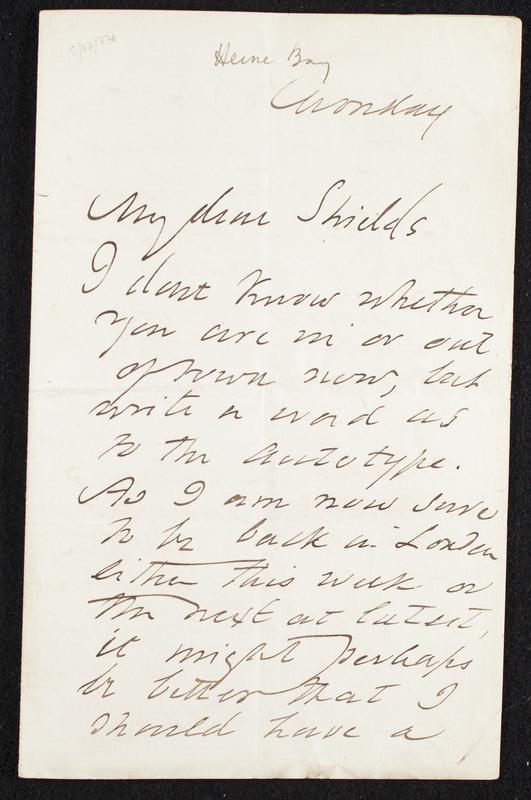 Heine Bay
Monday
My dear Shields
I dont know whether
you are in or out
of town now, but
write a word as
to the autotype.
As I am now sure
to be back in London
either this week or
the next at latest,
it might perhaps
be better that I
should have a